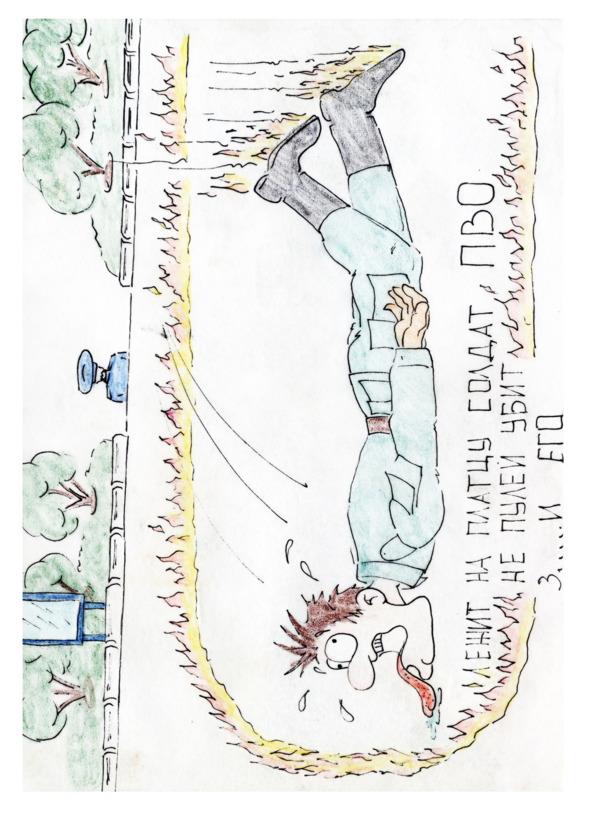 ЛЕЖИТ НА ПЛАТЦУ СОЛДАТ ПВО
НЕ ПУЛЕЙ УБИТ
З.....И ЕГО